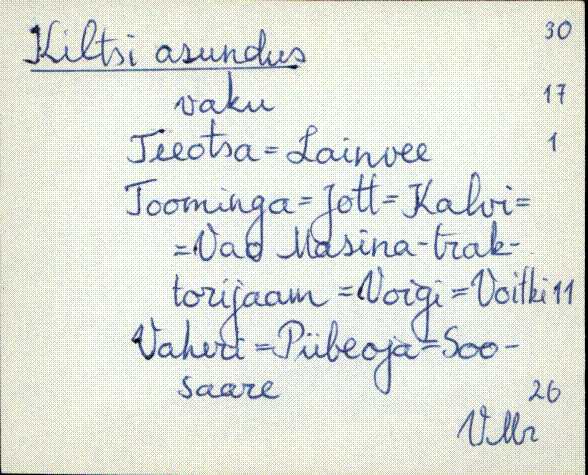 Kiltsi asundus 30
vaku 17
Teeotsa = Lainvee 1
Toominga = Jott = Kalvi =
= Vao Masina-trak-
torijaam = Voigi = Voitki 11
Vaheri = Piibeoja = Soo-
saare 26
VMr